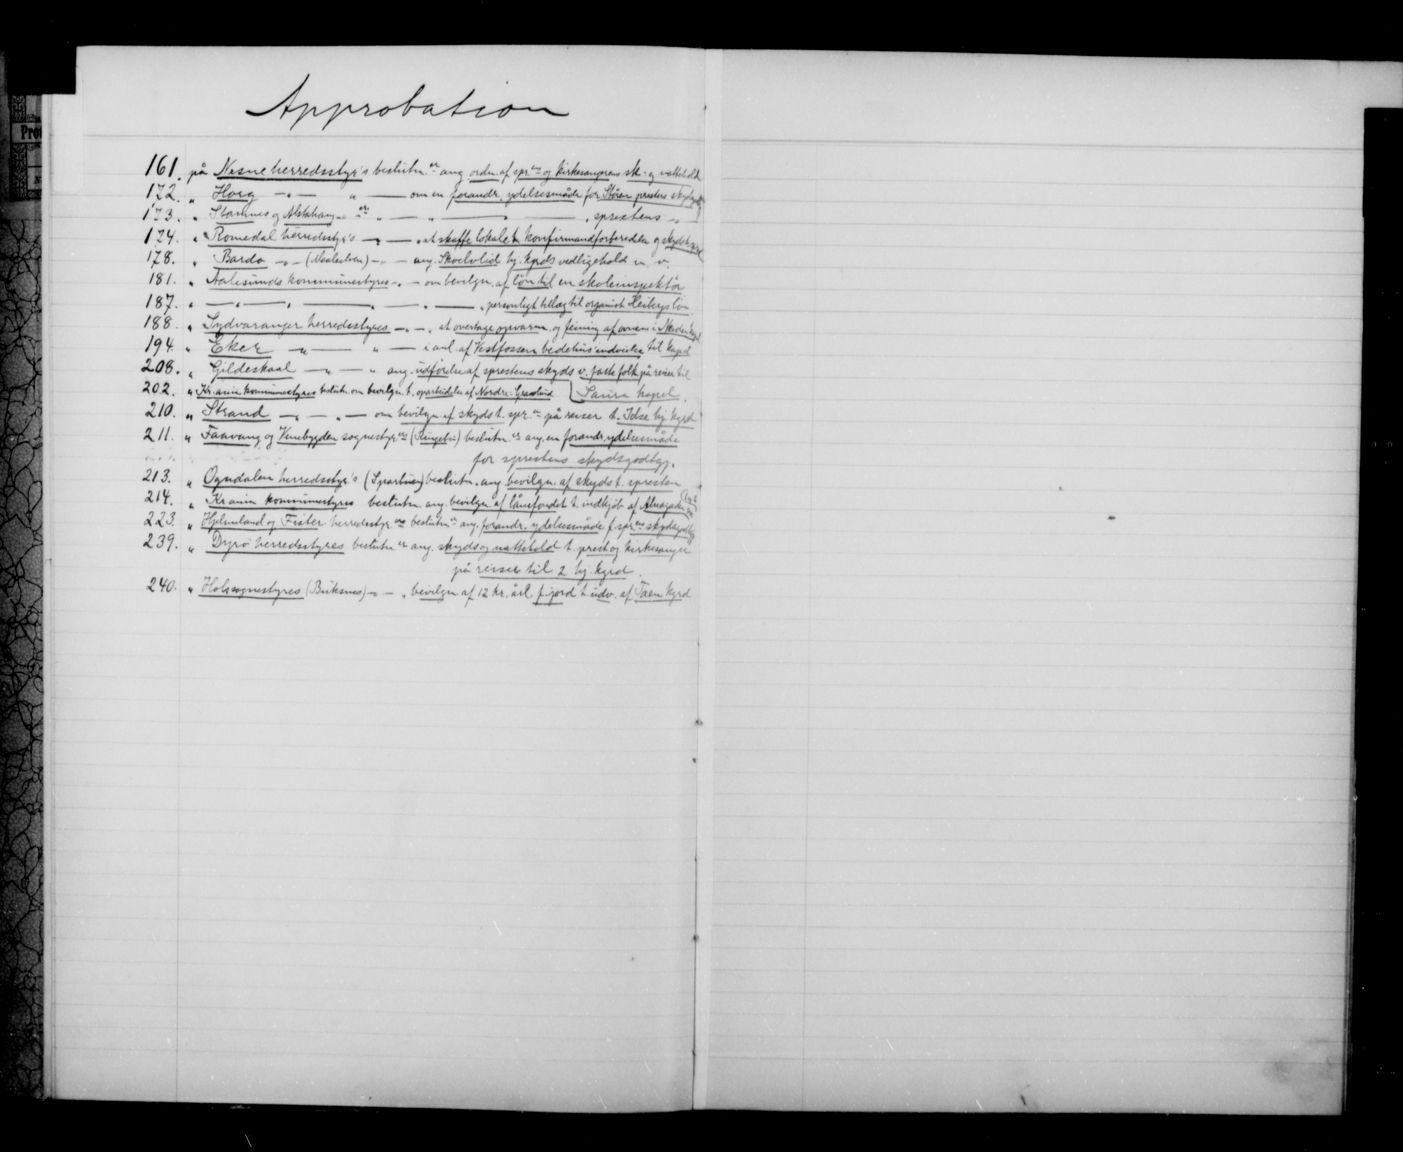 Prot
Approbation
161. på Nesne herredsstyr's beslutn. er ang. orden af spr. ens og kirkesangerens sk. og nattehold
172. " Horg — " — " — om en forandr. ydelsesmåde for Stören prestens skydsgodtg.
173. " Stamnes og Alstahaug — " — " — " — sprestens — " —
174. " Romedal herredsstyr's — " — " at skaffe lokale t. konfirmandforberedelse og
178. " Bardo — " — (Maalselven) — " — ang. hj. kgrds vedligehold m. v.
181. " Aalesunds kommunestyres — " — om bevilgn. af løn til en skoleinspektør
187. " — " — " — " — " personligt tillæg til organist Heibergs løn
188. " Sydvaranger herredsstyres — " — " at overtage opvarmn. og feining af ovnene i
194. " Eker — " — " — i anl. af Vestfossen bedehus' indvielse til kapel
208. " Gildeskaal — " — " ang. udførelse af sprestens skyds v. faste folk på reiser til
202. " Kr.ania kommunestyres beslutn. om bevilgn. t. oparbeidelse af Nordre Gravlund [Saura kapel.
210. " Strand — " — " — om bevilgn. af skyds t. spr. en på reiser t. Idse hj. kgrd
211. " Faavang og Venebygden sognestyr. ers (Ringebu) beslutn. er ang. en forandr. ydelsesmåde
for sprestens skydsgodtgj.
213. " Ogndalen herredsstyr's (Sparbuen) beslutn. ang. bevilgn. af skyds t. spresten
214. " Kr.ania kommunestyres beslutn. ang. bevilgn. af lånefondet t. indkjøb af
223. " Hjelmeland og Fister herredsstyr. ers beslutn. er ang. forandr. ydelsesmåde f. spr. ens skydsgodtgj.
239. " Dyrø herredsstyres beslutn. er ang. skyds og nattehold t. prest og kirkesanger
på reiser til 2 hj. kgrd.
240. " Hols sognestyres (Buksnes) — " — " bevilgn. af 12 kr. årl. f. jord t. udv. af Taen kgrd